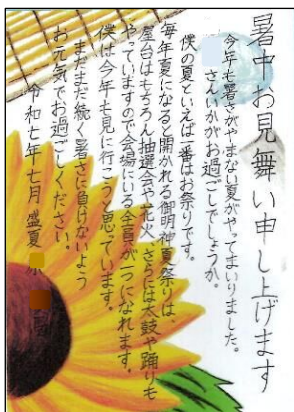 暑中お見舞い申し上げます
今年も暑さがやまない夏がやってまいりました。
さんいかがお過ごしでしょうか。
僕の夏といえば一番はお祭りです。
毎年夏になると開かれる御明神夏祭りは、
屋台はもちろん抽選会や花火、さらには太鼓や踊りも
やっていますので会場にいる全員が一つになれます。
僕は今年も見に行こうと思っています。
まだまだ続く暑さに負けないよう
お元気でお過ごしください。
令和七年七月 盛夏